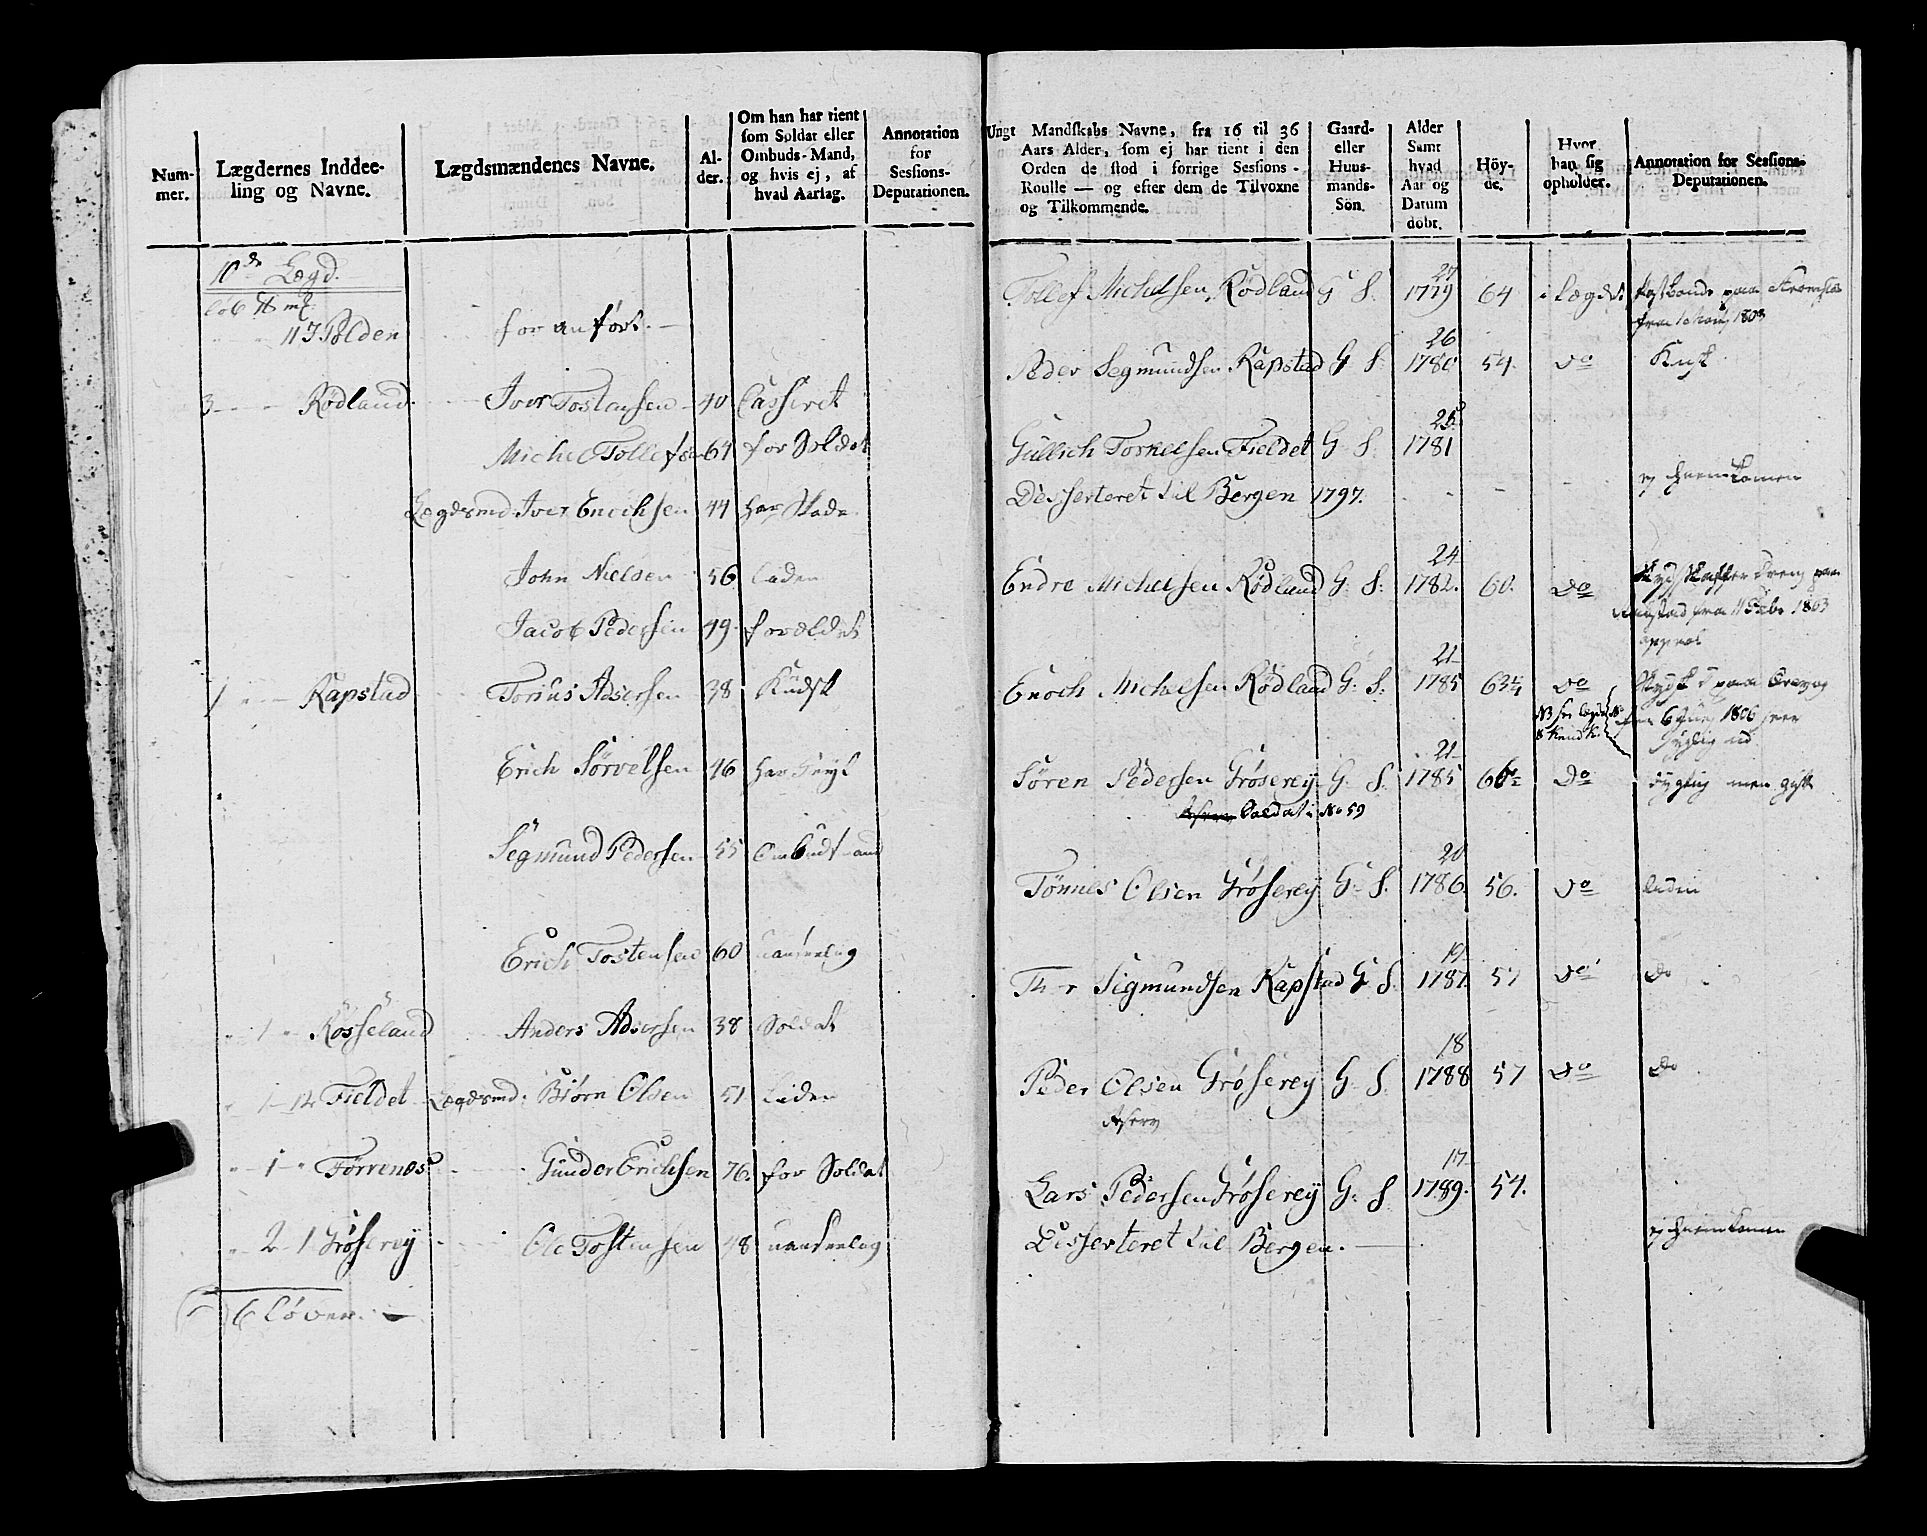 Num-
mer.
Lægdernes Inddee-
ling og Navne.
Lægdsmændenes Navne.
Al-
der.
Om han har tient
som Soldat eller
Ombuds-Mand,
og hvis ej, af
hvad Aarsag.
Annotation
for
Sessions-
Deputationen.
10de Lægd.
11 I Pølden
for anført.
3 Rødland Iver Tostensen 40 Casseret
Michel Tollefsen 64 for Soldat
Lægdsmd. Iver Enochsen 44 har
John Nielsen 56 liden
Jacob Pedersen 49 forældet
1 Rapstad Torius Adsersen 38 Kudsk
Erich Sørvelsen 46 har
Segmund Pedersen 55 Ombudsmand
Erich Tostensen 60 uandeelag
1 Røsseland Anders Adsersen 38 Soldat
1 12 Fieldet Lægdsmd: Biørn Olsen 51 Liden
1 Førrenæs Gunder Erichsen 76. for Soldat
2 1 Grøserey Ole Tostensen 48 uandeelag
6 løver.
Ungt Mandskabs Navne, fra 16 til 36
Aars Alder, som ej har tient i den
Orden de stod i forrige Sessions-
Roulle — og efter dem de Tilvoxne
og Tilkommende.
Gaard-
eller
Huus-
mands-
Sön.
Alder
Samt
hvad
Aar og
Datum
döbt.
Höy-
de.
Hvor
han sig
opholder.
Annotation for Sessions-
Deputationen.
27
Tollef Michelsen Rødland G S. 1779 64 i Lægdet Postbonde paa
fra 1803
26
Peder Segmundsen Rapstad G S. 1780 54. do
25
Gullich Tornelsen Fieldet G S. 1781
Desserteret til Bergen 1797. ej hiemkomen
24
Endre Michelsen Rødland G: S: 1782. 60. do
fra 1803
21
Enoch Michelsen Rødland G: S: 1785 63¼ do
1806
21
Søren Pedersen Grøserey G: S. 1785 66½ Do dygtig men gift
Soldat i No 59
20
Tønnes Olsen Grøserey G: S. 1786. 56. do liden
19
Segmundsen Rapstad G S. 1787. 57 do do
18
Peder Olsen Grøserey G: S. 1788 57 do do
Reserv
17
Lars Pedersen Grøserey G: S 1789. 54.
Desserteret til Bergen. ej hiemkomen